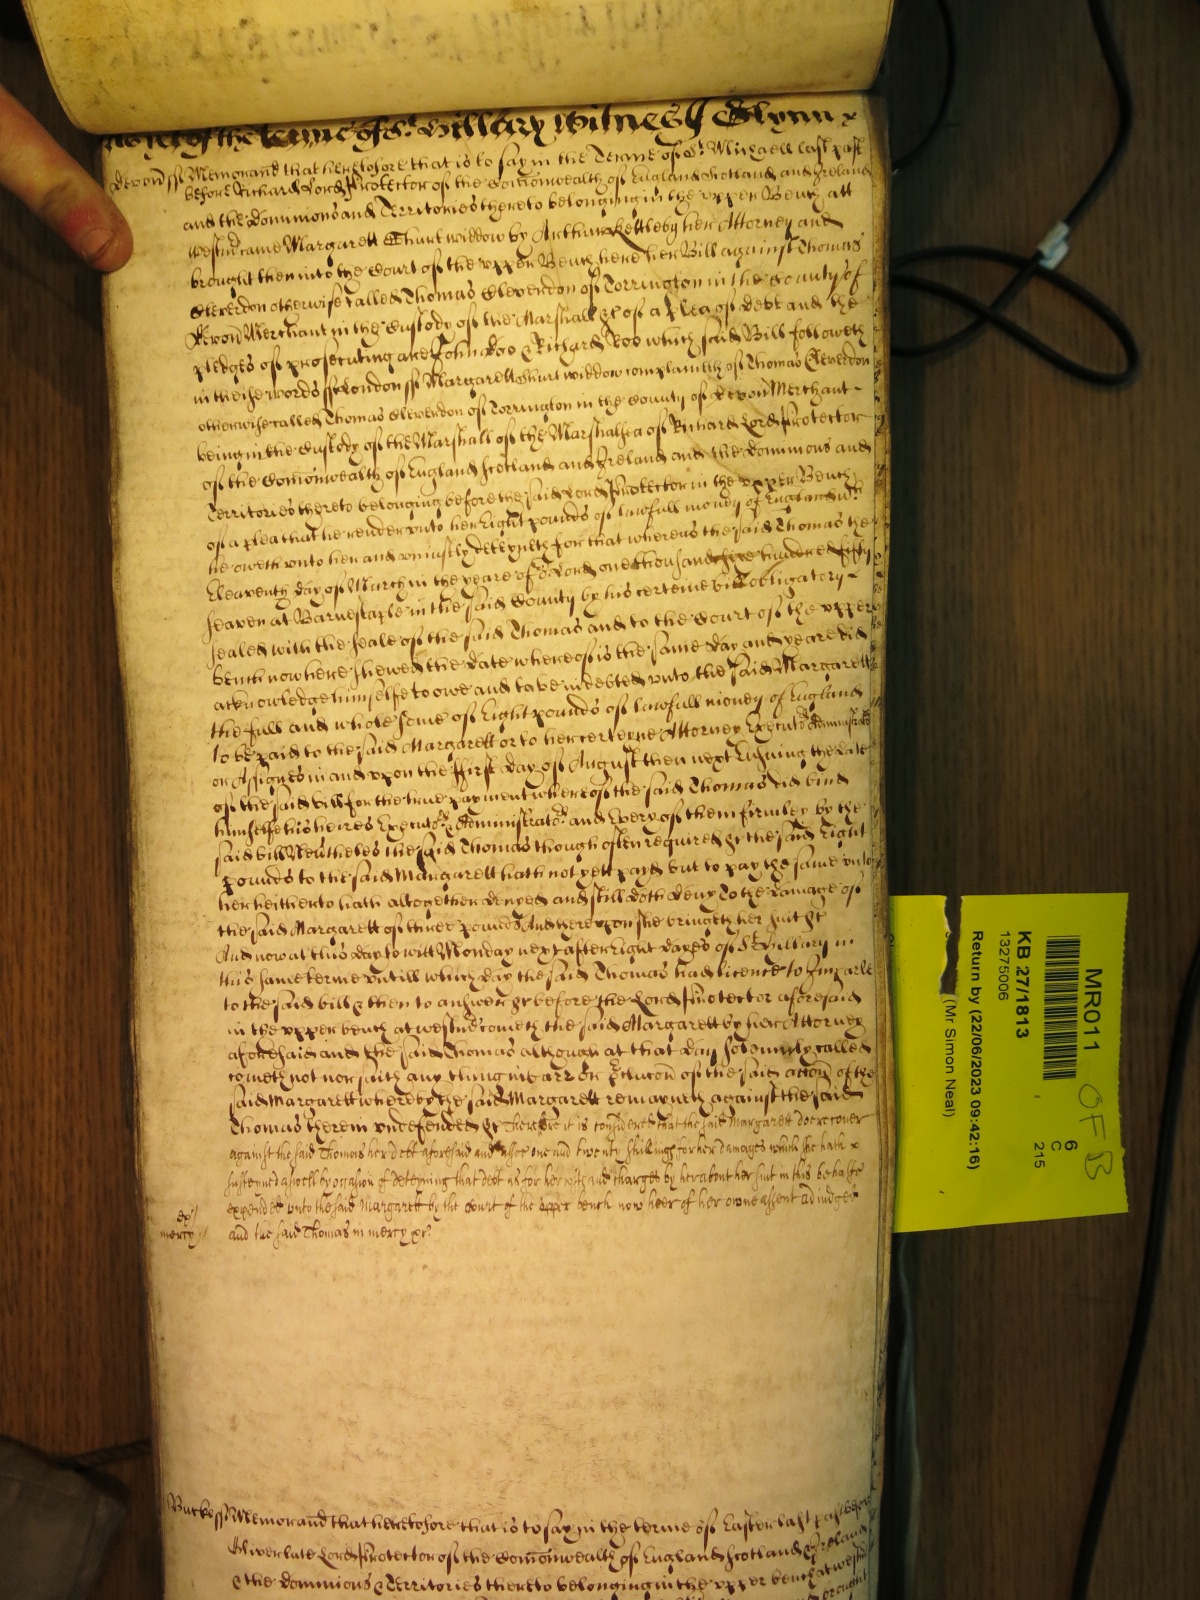 as yet of the terme of St. Hillary Witness Glynn
Devon ss Memorand that heretofore that is to say in the Terme of St. Michaell last past
before Richard Lord Protector of the Comonwealth of England Scotland and Ireland
and the dominions and Territories thereto belonging in the upper Bench att
Westmr came Margarett Chun widdow by Arthur Kelleby her Attorney and
brought then into the Court of the upper Bench here her Bill against Thomas
Cleverdon otherwise called Thomas Cleverdon of Torrington in the County of
Devon Merchant in the Custody of the Marshall &c of a plea of debt and the
pledges of prosecuting are John Doo & Richard Roo which said Bill followeth
in theise words ss London ss Margarett Chun widdow complaineth of Thomas Cleverdon
otherwise called Thomas Cleverdon of Torrington in the County of Devon Merchant
being in the Custody of the Marshall of the Marshalsea of Richard Lord Protector
of the Comonwealth of England Scotland and Ireland and the dominions and
Territories thereto belonging before the said Lord Protector in the upper Bench
of a plea that he render unto her Eight pounds of lawfull money of England wch
he oweth unto her and uniustly deteyneth for that whereas the said Thomas the
Eleaventh day of March in the yeare of or Lord one thousand six hundred fifty
seaven at Barnestaple in the said County by his certeine bill obligatory
sealed with the seale of the said Thomas and to the Court of the upper
bench now here shewed the date whereof is the same day and yeare did
acknowledge himselfe to owe and to be indebted unto the said Margarett
the full and whole some of Eight pounds of lawfull money of England
to be paid to the said Margarett or to her certeyne Attorney Executors Administrators
or Assignes in and upon the first day of August then next Ensuing the date
of the said bill for the true payment whereof the said Thomas did bind
himselfe his heires Executors & Administrators and Every of them firmley by the
said bill Nevertheles the said Thomas though often required &c the said Eight
pounds to the said Margarett hath not yett payd but to pay the same unto
her hitherto hath altogether denyed and still doth deny To the damage of
the said Margarett of three pounds And thereupon she bringeth her suit &c
And now at this day to witt Monday next after Eight dayes of St Hillary in
this same terme untill which day the said Thomas had licence to Imparle
to the said bill & then to answer &c before the Lord Protector aforesaid
in the upper bench at westmr cometh the said Margarett by her Attorney
aforesaid and the said Thomas although at that day solemnly called
cometh not nor saith any thing in barr or preclucon of the said accon of the
said Margarett whereby the said Margarett remayneth against the said
Thomas therein undefended &c Therefore it is considered that the said Margarett doe recover
against the said Thomas her debt aforesaid and alsoe one and twenty shillings for her damages which she hath
susteined aswell by occasion of deteyning that debt as for her costs and charges by her about her suit in this behalfe
expended unto the said Margarett by the Court of the upper bench now heer of her owne assent adiudged
and the said Thomas in mercy &c
mercy
Bucks ss Memorand that heretofore that is to say in the terme of Easter last past before
Oliver late Lord Protector of the Comonwealth of England Scotland & Ireland
& the dominions & Territories thereto belonging in the upper bench at westmr
MR011
OF B
6
C
215
KB 27/1813
13275006
Return by (22/06/2023 09:42:16)
(Mr Simon Neal)